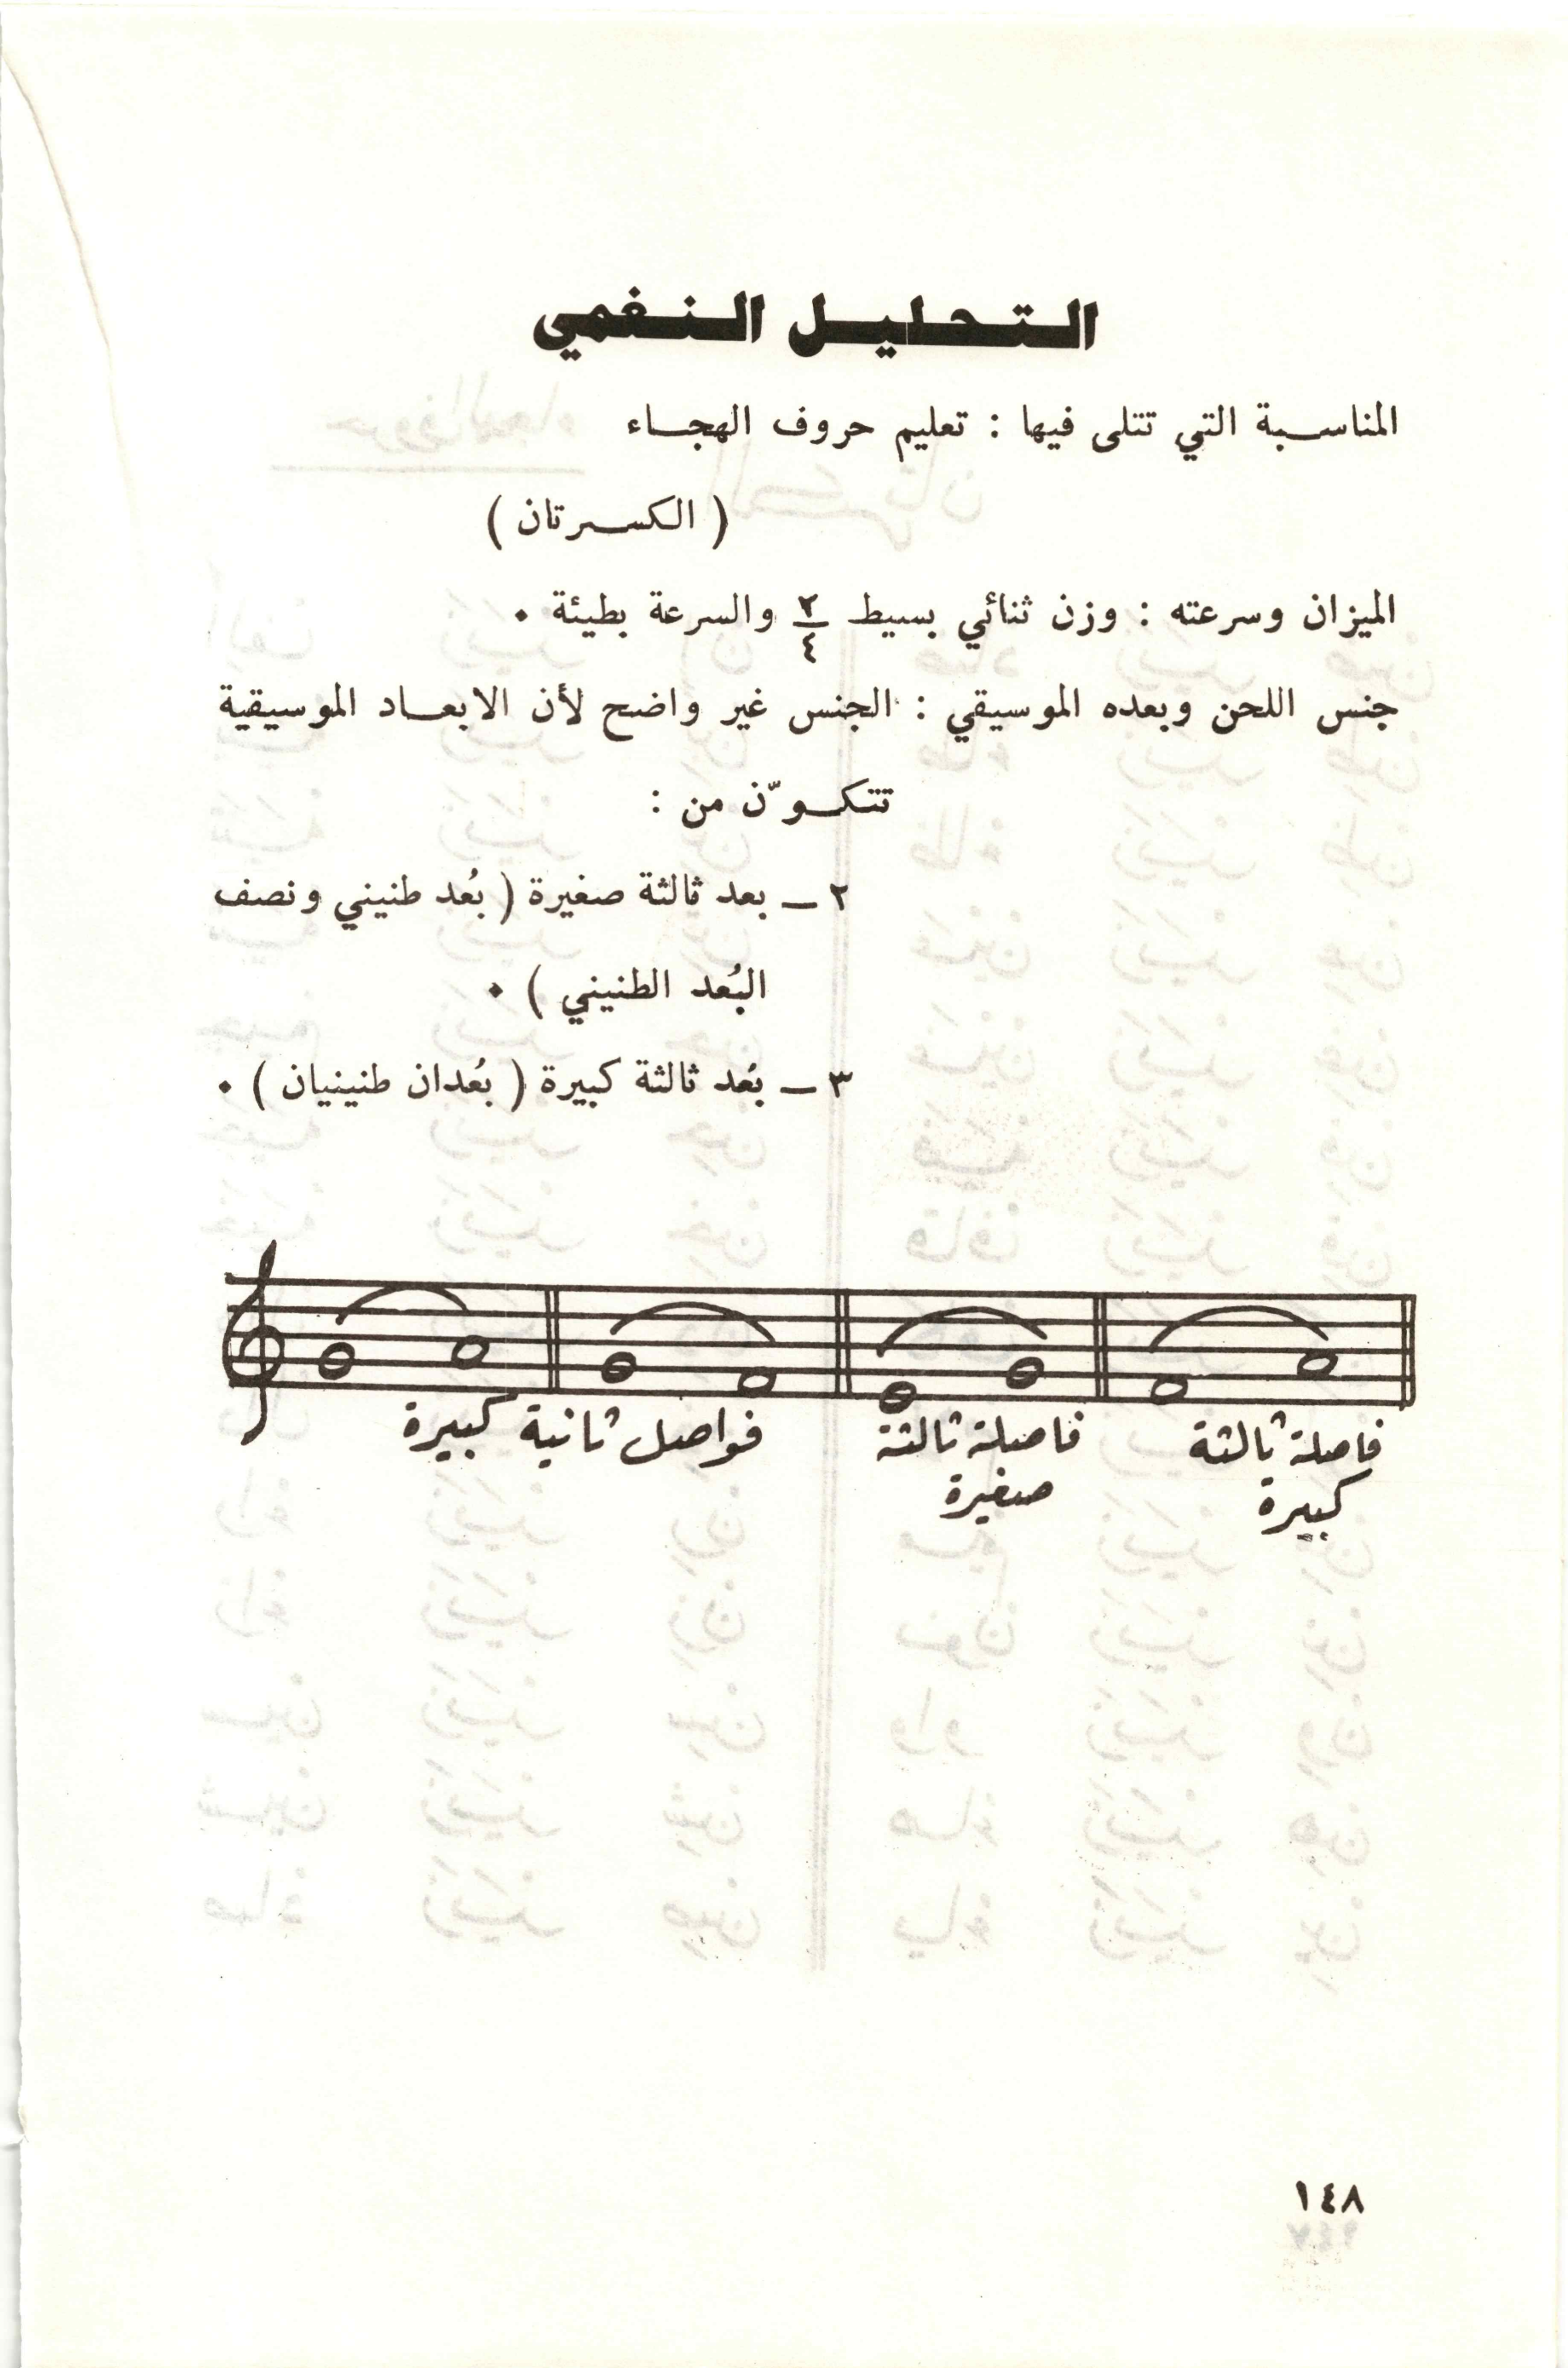 التحليل النغمي
المناسبة التي تتلى فيها : تعليم حروف الهجاء
( الكسرتان )
الميزان وسرعته : وزن ثنائي بسيط ٢/٤ والسرعة بطيئة ٠
جنس اللحن وبعده الموسيقي : الجنس غير واضح لأن الابعاد الموسيقية
تتكوّن من :
٢ ــ بعد ثالثة صغيرة ( بُعد طنيني ونصف
البُعد الطنيني ) ٠
٣ ــ بُعد ثالثة كبيرة ( بُعدان طنينيان ) ٠
فواصل ثانية كبيرة
فاصلة ثالثة
صغيرة
فاصلة ثالثة
كبيرة
١٤٨